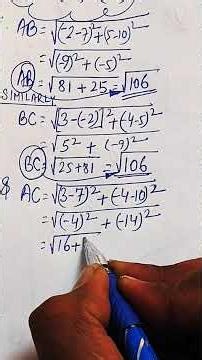 AB = √(-2-7)²+(5-10)²
= √(-9)²+(-5)²
AB = √81+25 = √106
SIMILARLY
BC = √[3-(-2)]²+(-4-5)²
= √5²+(-9)²
BC = √25+81 = √106
& AC = √(3-7)²+(-4-10)²
= √(-4)²+(-14)²
= √16+